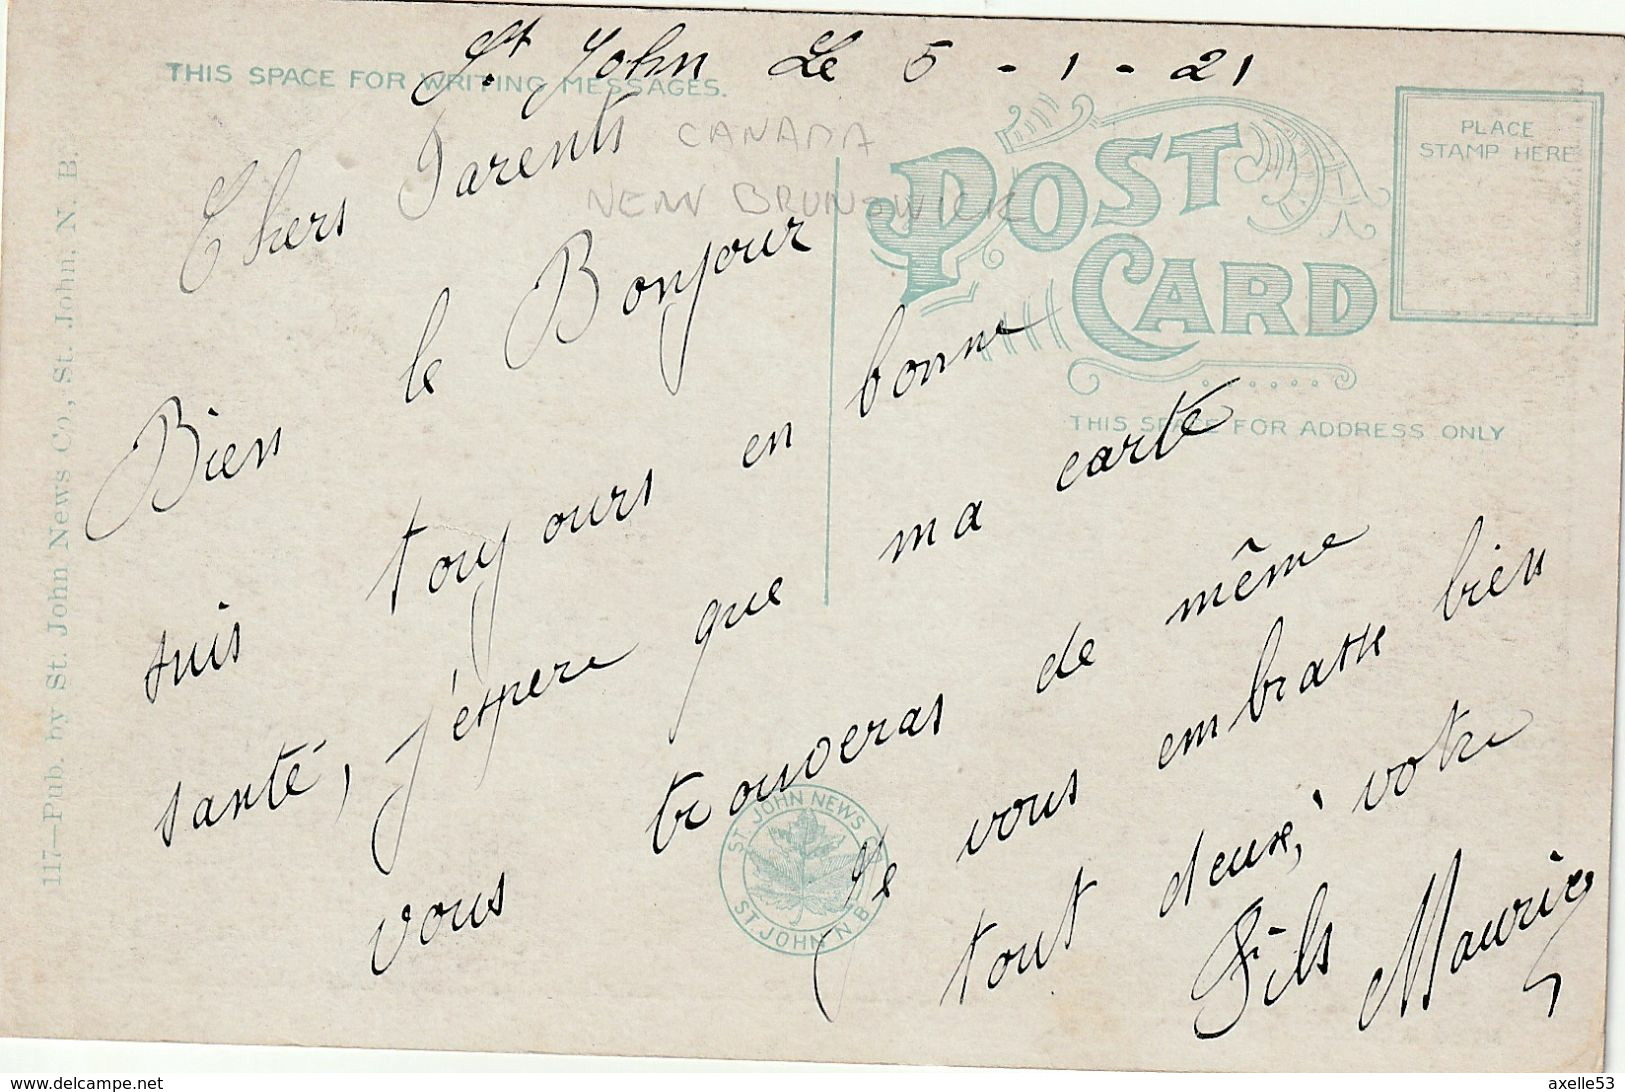 St John Le 5 - 1 - 21
THIS SPACE FOR WRITING MESSAGES.
CANADA
NEW BRUNSWICK
POST CARD
PLACE
STAMP HERE
THIS SPACE FOR ADDRESS ONLY
Chers Parents
Bien le Bonjour
suis toujours en bonne
santé, j'espere que ma carte
vous trouveras de même
Je vous embrasse bien
tout deux, votre
Fils Maurice
117—Pub. by St. John News Co., St. John, N. B.
ST. JOHN NEWS CO
ST. JOHN N B
www.delcampe.net
axelle53